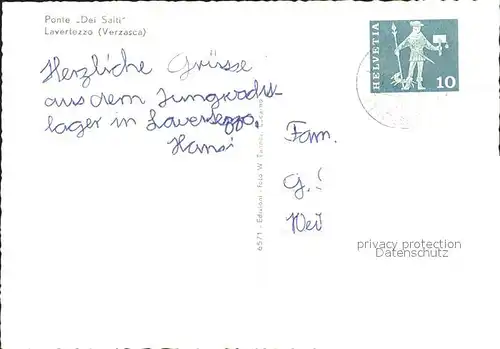 Ponte „Dei Salti"
Lavertezzo (Verzasca)
HELVETIA
10
Herzliche Grüsse
aus dem Jungwacht-
lager in Lavertezzo.
Hansi
Fam.
G.
Wei
6571 - Edizioni - Foto W.
privacy protection
Datenschutz